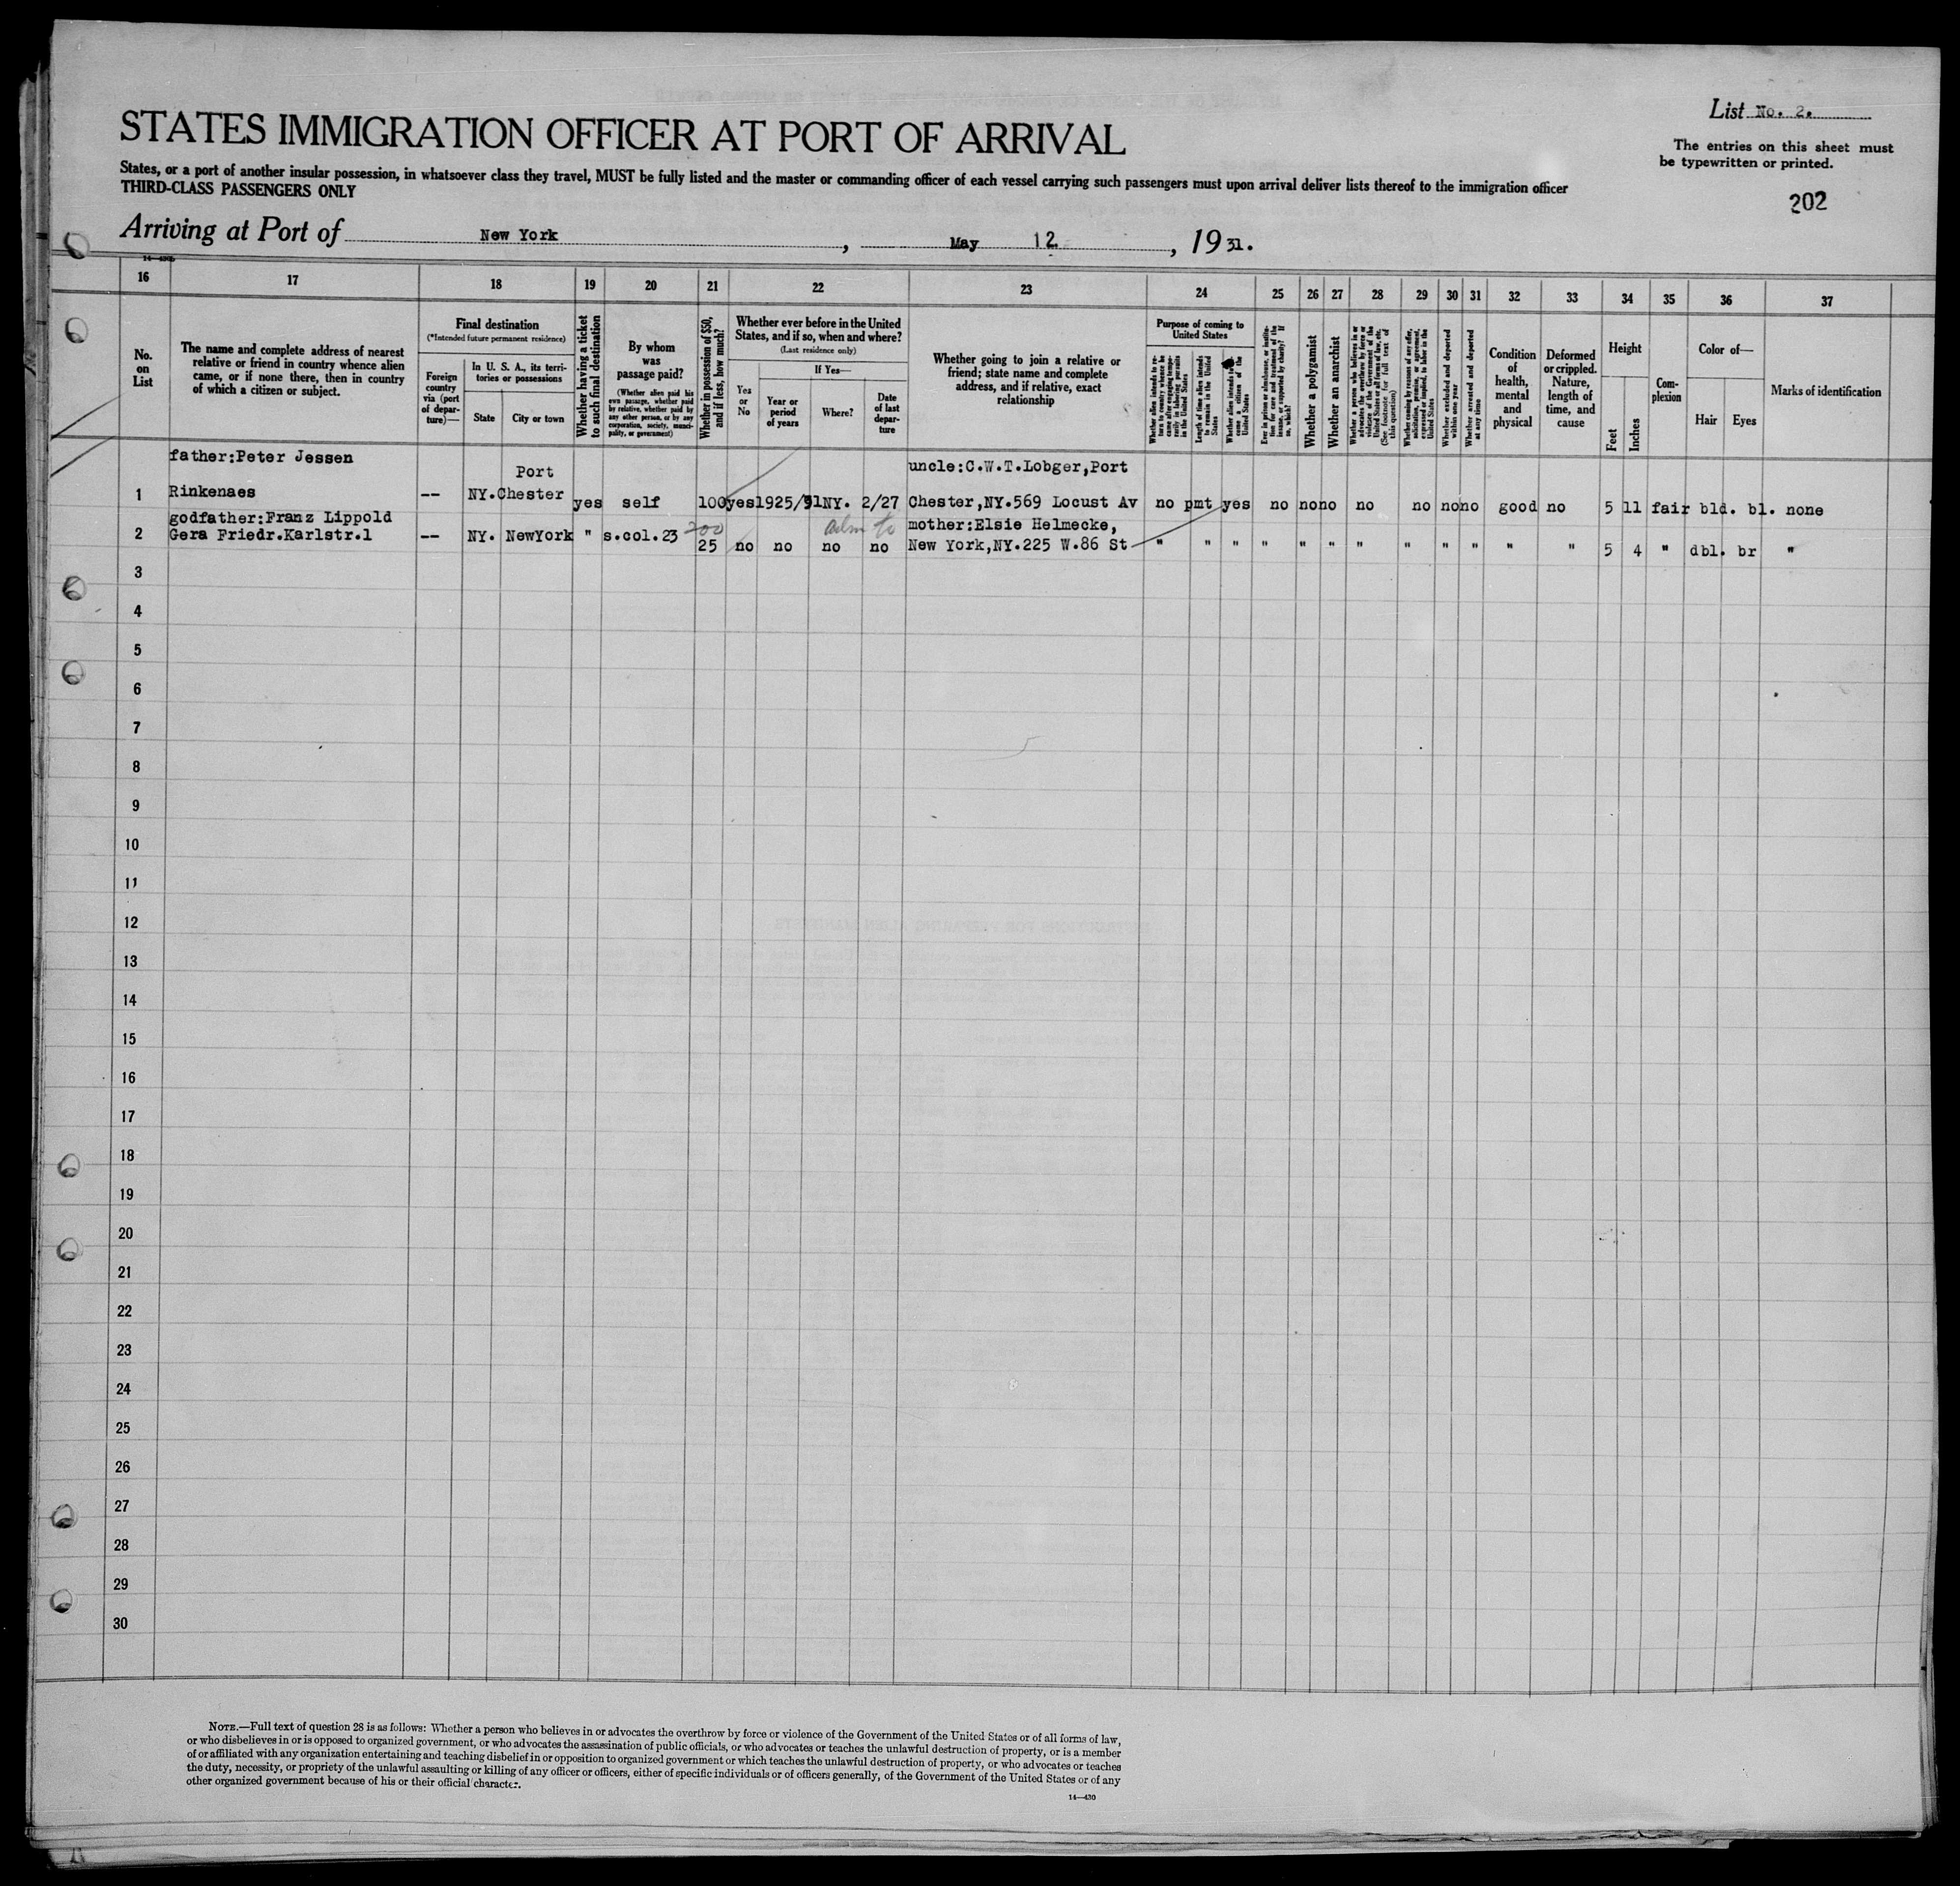 List No. 2.
STATES IMMIGRATION OFFICER AT PORT OF ARRIVAL
The entries on this sheet must
be typewritten or printed.
States, or a port of another insular possession, in whatsoever class they travel, MUST be fully listed and the master or commanding officer of each vessel carrying such passengers must upon arrival deliver lists thereof to the immigration officer
THIRD-CLASS PASSENGERS ONLY
202
Arriving at Port of New York, May 12, 1931.
16 17 18 19 20 21 22 23 24 25 26 27 28 29 30 31 32 33 34 35 36 37
No.
on
List
The name and complete address of nearest
relative or friend in country whence alien
came, or if none there, then in country
of which a citizen or subject.
Final destination
(*Intended future permanent residence)
Foreign
country
via (port
of depar-
ture)—
In U. S. A., its terri-
tories or possessions
State
City or town
Whether having a ticket
to such final destination
By whom
was
passage paid?
(Whether alien paid his
own passage, whether paid
by relative, whether paid by
any other person, or by any
corporation, society, munici-
pality, or government)
Whether in possession of $50,
and if less, how much?
Whether ever before in the United
States, and if so, when and where?
(Last residence only)
Yes
or
No
If Yes—
Year or
period
of years
Where?
Date
of last
depar-
ture
Whether going to join a relative or
friend; state name and complete
address, and if relative, exact
relationship
Purpose of coming to
United States
Whether alien intends to re-
turn to country whence he
came after engaging tempo-
rarily in laboring pursuits
in the United States
Length of time alien intends
to remain in the United
States
Whether alien intends to be-
come a citizen of the
United States
Ever in prison or almshouse, or institu-
tion for care and treatment of the
insane, or supported by charity? If
so, which?
Whether a polygamist
Whether an anarchist
Whether a person who believes in or
advocates the overthrow by force or
violence of the Government of the
United States or all forms of law, etc.
(See footnote for full text of
this question)
Whether coming by reason of any offer,
solicitation, promise, or agreement,
expressed or implied, to labor in the
United States
Whether excluded and deported
within one year
Whether arrested and deported
at any time
Condition
of
health,
mental
and
physical
Deformed
or crippled.
Nature,
length of
time, and
cause
Height
Feet
Inches
Com-
plexion
Color of—
Hair
Eyes
Marks of identification
father:Peter Jessen Port uncle:C.W.T.Lobger,Port
1 Rinkenaes -- NY. Chester yes self 100 yes 1925/31 NY. 2/27 Chester,NY.569 Locust Av no pmt yes no no no no no no no good no 5 11 fair bld. bl. none
godfather:Franz Lippold 200 adm to mother:Elsie Helmecke,
2 Gera Friedr.Karlstr.1 -- NY. NewYork " s.col.23 25 no no no no New York,NY.225 W.86 St " " " " " " " " " " " " 5 4 " dbl. br "
3
4
5
6
7
8
9
10
11
12
13
14
15
16
17
18
19
20
21
22
23
24
25
26
27
28
29
30
NOTE.—Full text of question 28 is as follows: Whether a person who believes in or advocates the overthrow by force or violence of the Government of the United States or of all forms of law,
or who disbelieves in or is opposed to organized government, or who advocates the assassination of public officials, or who advocates or teaches the unlawful destruction of property, or is a member
of or affiliated with any organization entertaining and teaching disbelief in or opposition to organized government or which teaches the unlawful destruction of property, or who advocates or teaches
the duty, necessity, or propriety of the unlawful assaulting or killing of any officer or officers, either of specific individuals or of officers generally, of the Government of the United States or of any
other organized government because of his or their official character.
14—430